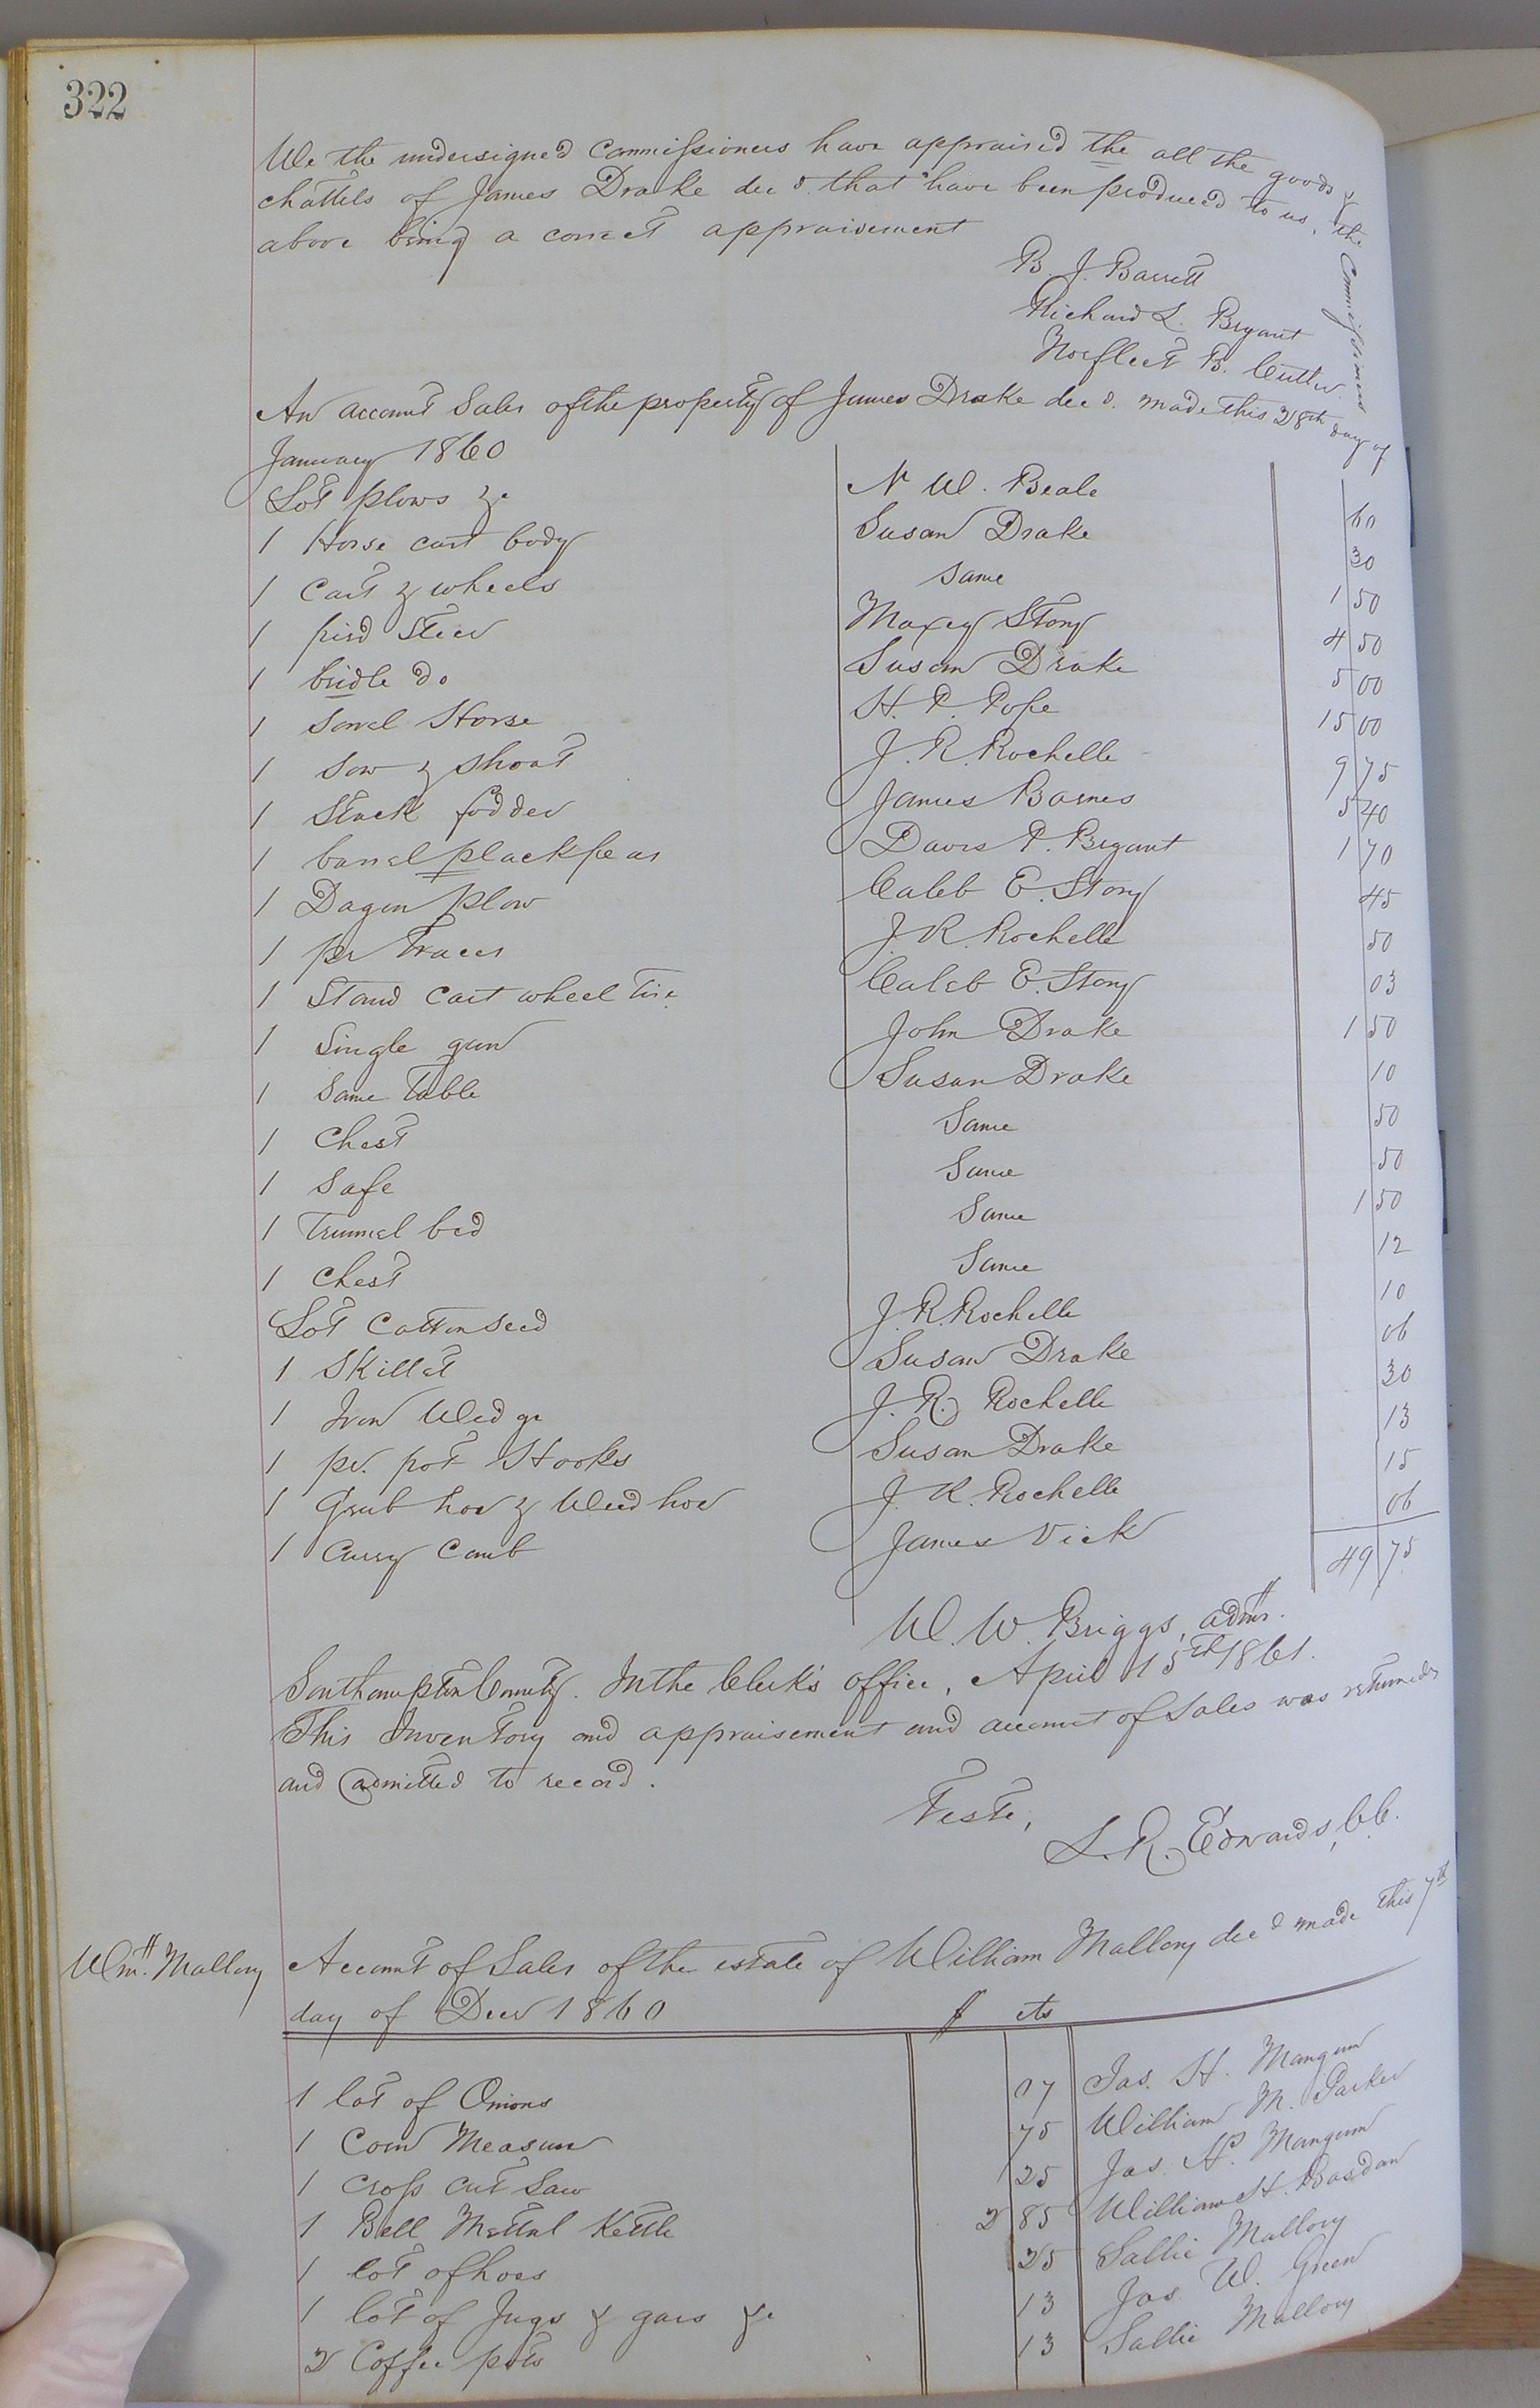 322
We the undersigned Commissioners have appraised the all the goods &
chattels of James Drake decd. that have been produced to us, the
above being a correct appraisement
B. J. Barrett
Richard L. Bryant
Norfleet B. Cutler
Commissioners
An account Sales of the property of James Drake decd. made this 28th day of
January 1860
Lot plows &c N W. Beale 60
1 Horse cart body Susan Drake 30
1 Cart & wheels Same 1 50
1 pied Steer Maxey Story 4 50
1 bridle do Susan Drake 5 00
1 Sorrel Horse H. P. Pope 15 00
1 Sow & Shoat J. R. Rochelle 9 75
1 Stack fodder James Barnes 5 40
1 barrel plackpeas Davis P. Bryant 1 70
1 Dagon plow Caleb E. Story 45
1 pr Traces J. R. Rochelle 50
1 Stand cart wheel tire Caleb E. Story 03
1 Single gun John Drake 1 50
1 Same Table Susan Drake 10
1 Chest Same 50
1 Safe Same 50
1 Trummel bed Same 1 50
1 Chest Same 12
Lot Cottonseed J. R. Rochelle 10
1 Skillet Susan Drake 06
1 Iron Wedge J. R. Rochelle 30
1 pr. pot Hooks Susan Drake 13
1 Grub hoe & Weed hoe J. R. Rochelle 15
1 Curry Comb James Vick 06
49 75
W. W. Briggs, admr.
Southampton County. In the Clerk's office, April 15th 1861.
This Inventory and appraisement and account of Sales was returned
and admitted to record.
Teste,
L. R. Edwards, CC.
Wm. Mallory
Account of Sales of the estate of William Mallory decd made this 7th
day of Decr 1860 $ cts
1 lot of Onions 07 Jas. H. Mangum
1 Corn Measure 75 William M. Parker
1 Cross cut Saw 25 Jas. H. Mangum
1 Bell Mettal Kettle 2 85 William H. Basdan
1 lot of hoes 25 Sallie Mallory
1 lot of Jugs & gars &c 13 Jas. W. Green
2 Coffee pots 13 Sallie Mallory